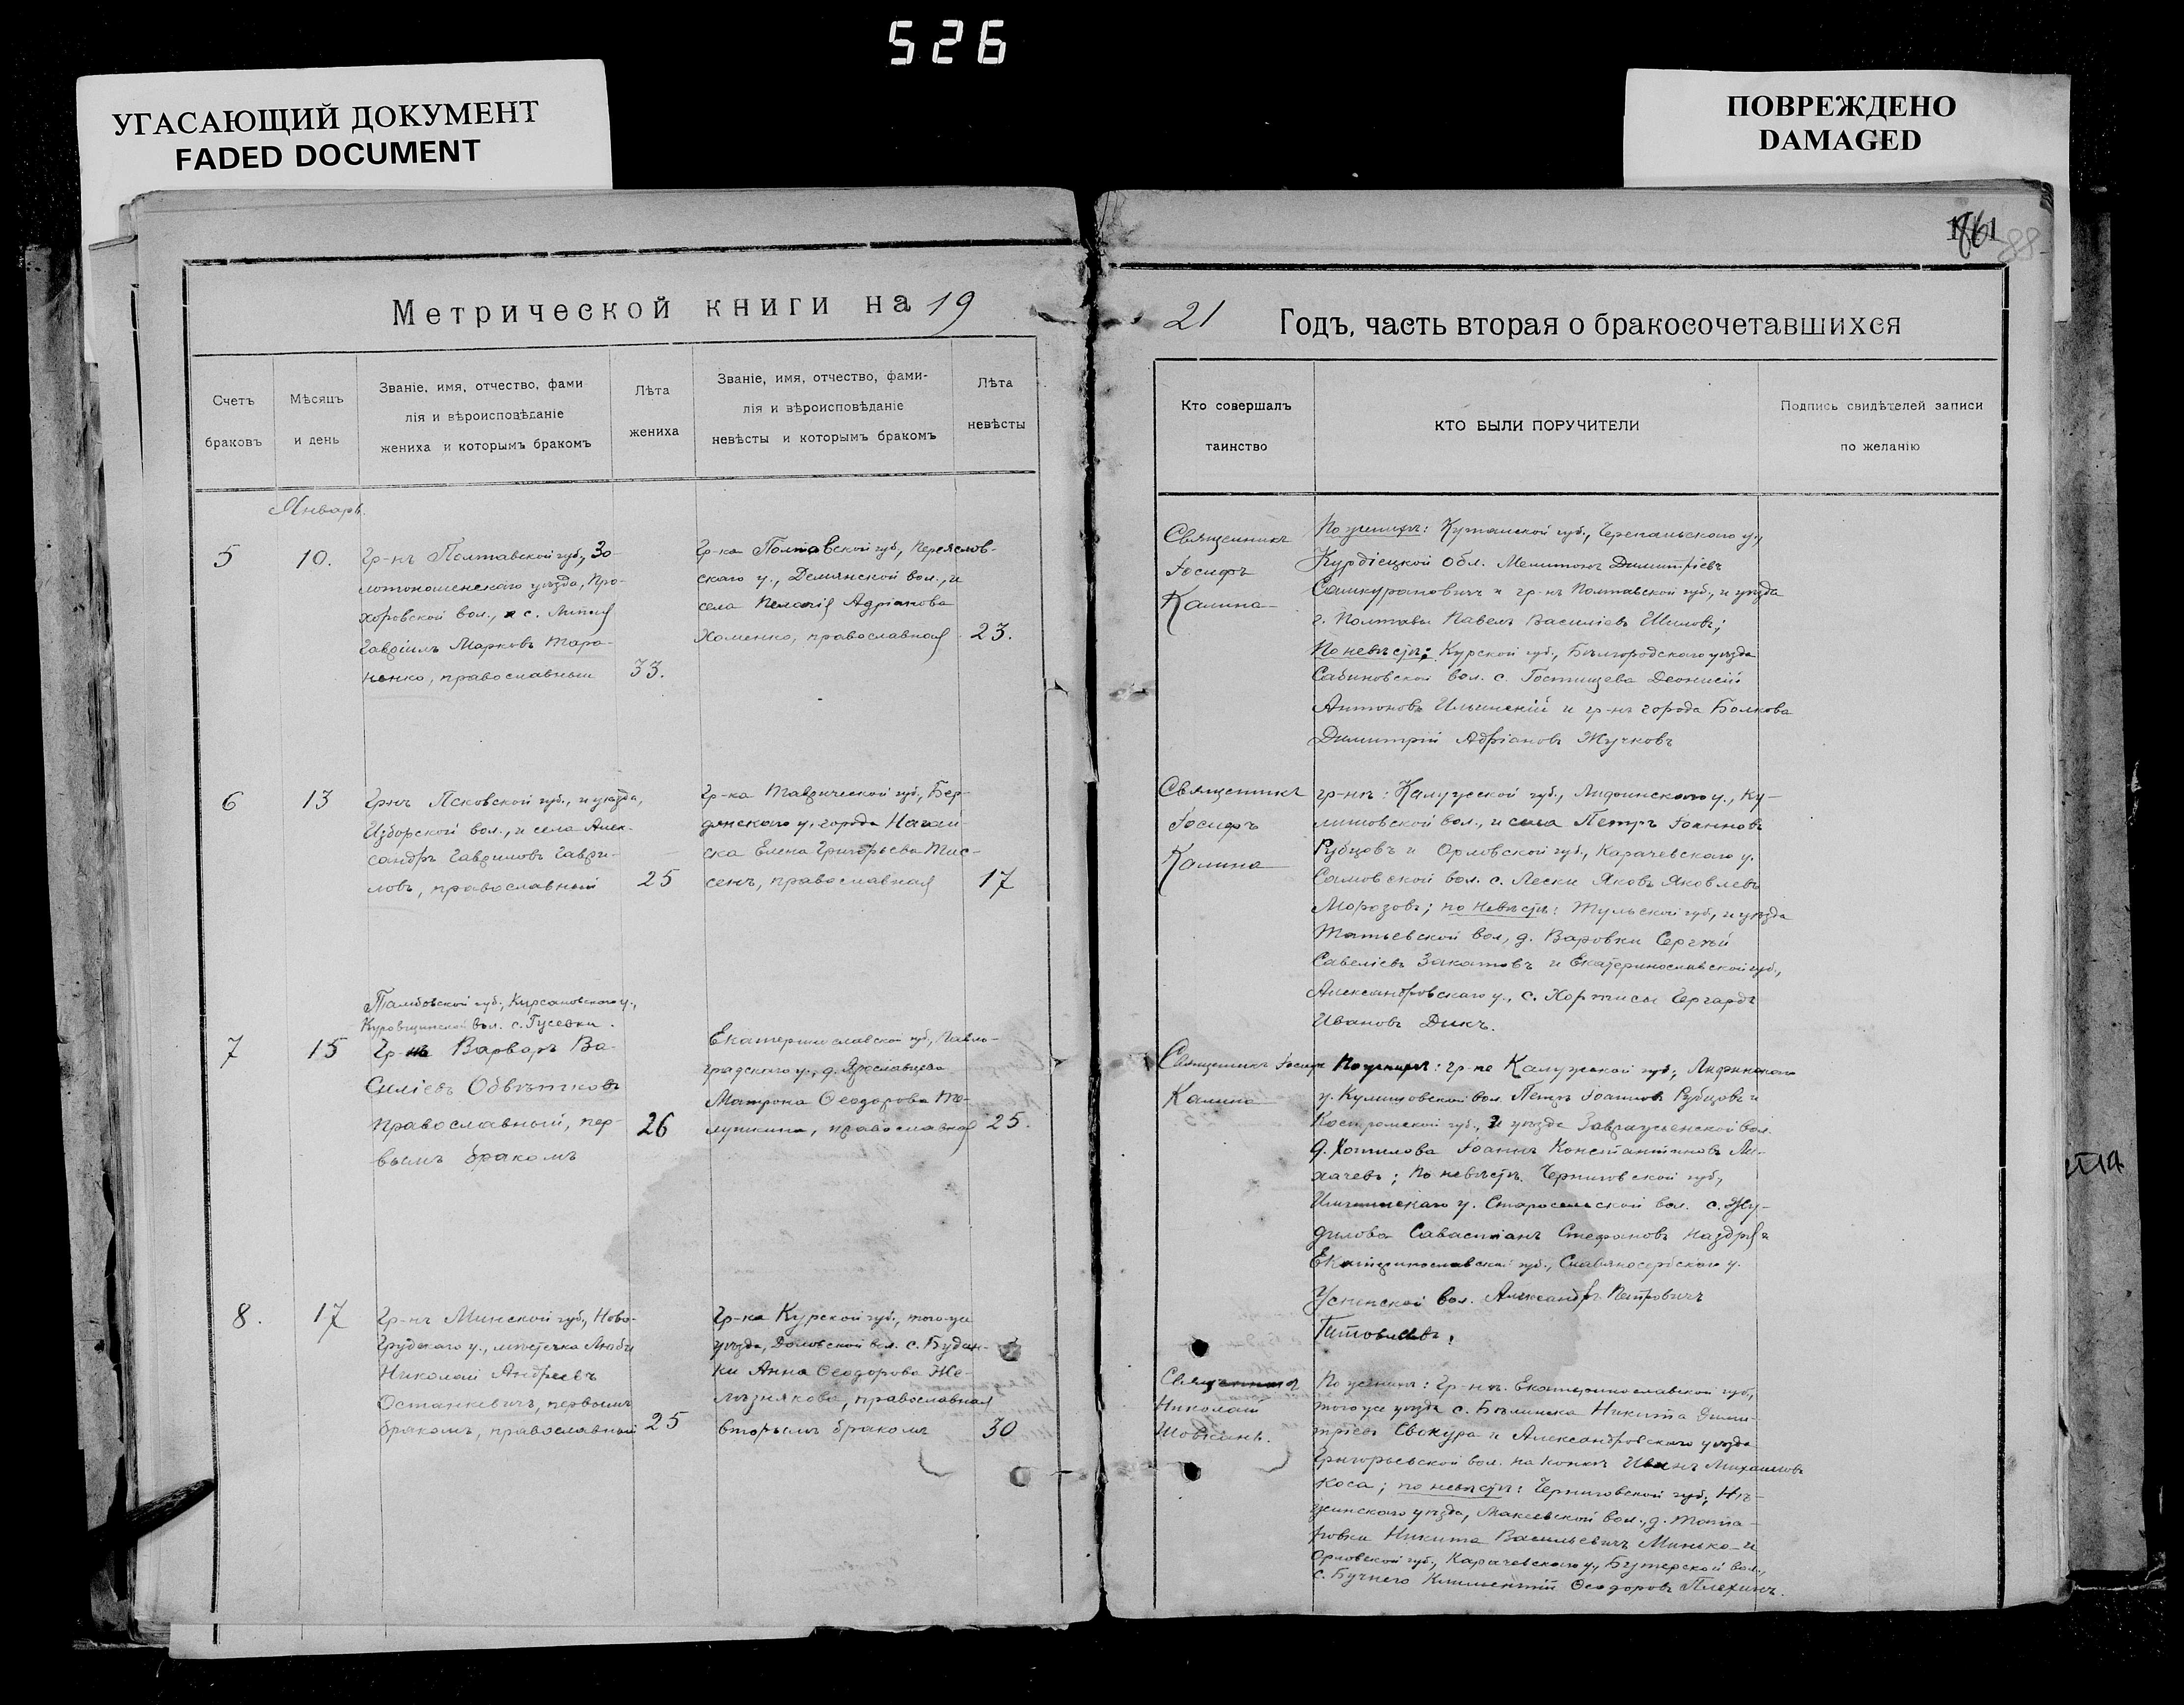 526
УГАСАЮЩИЙ ДОКУМЕНТ
FADED DOCUMENT
ПОВРЕЖДЕНО
DAMAGED
161
88
Метрической книги на 19
21 Годъ, часть вторая о бракосочетавшихся
Счетъ
браковъ
Мѣсяцъ
и день
Званіе, имя, отчество, фами
лія и вѣроисповѣданіе
жениха и которымъ бракомъ
Лѣта
жениха
Званіе, имя, отчество, фами-
лія и вѣроисповѣданіе
невѣсты и которымъ бракомъ
Лѣта
невѣсты
Кто совершалъ
таинство
КТО БЫЛИ ПОРУЧИТЕЛИ
Подпись свидѣтелей записи
по желанію
Январь.
5
10.
Гр-нъ Полтавской губ., Зо-
лотоношенскаго уѣзда, Про-
хоровской вол., с.
Гавріилъ Марковъ Тара-
ненко, православный
33.
Гр-ка Полтавской губ., Переяслов-
скаго у., Демянской вол., и
села Пелагія Адріанова
Хоменко, православная
23.
Священникъ
Іосифъ
Калина
По женихѣ: Кутаиской губ.,
обл. Мелитонъ Димитріевъ
и гр-нъ Полтавской губ., и уѣзда
г. Полтавы Павелъ Василіевъ Шиловъ;
По невѣстѣ: Курской губ., Бѣлгородскаго уѣзда
Сабыновской вол. с. Гостищева Деонисій
Антоновъ Ильинскій и гр-нъ города Болхова
Димитрій Адріановъ Жучковъ
6
13
Гр-нъ Псковской губ., и уѣзда,
Изборской вол., и села Алек-
сандръ Гавриловъ Гаври-
ловъ, православный
25
Гр-ка Таврической губ., Бер-
дянскаго у. города Ногай-
ска Елена Григорьева Тис-
сенъ, православная
17
Священникъ
Іосифъ
Калина
гр-нъ: Калужской губ., у., Ку-
лиговской вол., и села Петръ Іоанновъ
Рубцовъ и Орловской губ., Карачевскаго у.
вол. с. Лески Яковъ Яковлевъ
Морозовъ; по невѣстѣ: Тульской губ., и уѣзда
вол., д. Варовки Сергѣй
Савеліевъ Закатовъ и Екатеринославской губ.,
Александровскаго у., с. Хортицы Гергардъ
Ивановъ Дикъ.
Тамбовской губ., Кирсановскаго у.,
Куровщинской вол. с. Гусевки.
7
15
Гр-нъ Варваръ Ва-
силіевъ Обвѣтковъ
православный, пер-
вымъ бракомъ
26
Екатеринославской губ., Павло-
градскаго у., д. Ярославцева
Матрона Ѳеодорова Те-
лушкина, православная
25.
Священникъ Іосифъ
Калина
По женихѣ: гр-не Калужской губ.,
у. Кулиговской вол. Петръ Іоанновъ Рубцовъ и
Костромской губ., и уѣзда вол.
д. Іоаннъ Константиновъ Ли-
хачевъ; По невѣстѣ. Черниговской губ.,
у. Старосельской вол. с. Жу-
дилова Савастіанъ Стефановъ Наздря и
Екатеринославской губ., Славяносербскаго у.
Успенской вол. Александръ Петровичъ
8.
17
Гр-нъ Минской губ., Ново-
грудскаго у., мѣстечка Любчи
Николай Андреевъ
Останкевичъ, первымъ
бракомъ, православный
25
Гр-ка Курской губ., того-же
уѣзда, вол. с. Будан-
ки Анна Ѳеодорова Же-
лѣзнякова, православная
вторымъ бракомъ
30
Священникъ
Николай
По женихѣ: гр-нъ. Екатеринославской губ.,
того же уѣзда с. Никита Дими-
тріевъ Свокура и Александровскаго уѣзда
Григорьевской вол. Иванъ Михайловъ
Коса; по невѣстѣ: Черниговской губ., Нѣ-
жинскаго уѣзда, Макеевской вол., д.
Никита Васильевичъ Минько и
Орловской губ., Карачевскаго у., вол.,
с. Климентій Ѳеодоровъ Плехинъ.